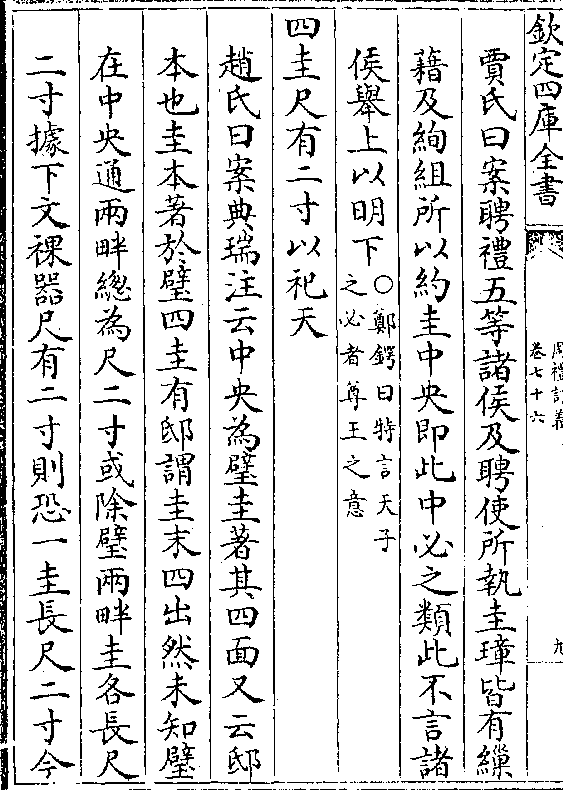 欽定四庫全書
周禮訂義
卷七十六
九
賈氏曰案聘禮五等諸侯及聘使所執圭璋皆有繅
藉及絢組所以約圭中央即此中必之類此不言諸
侯舉上以明下○鄭鍔曰特言天子
之必者尊王之意
四圭尺有二寸以祀天
趙氏曰案典瑞注云中央為璧圭著其四面又云邸
本也圭本著於璧四圭有邸謂圭末四出然未知璧
在中央通兩畔總為尺二寸或除璧兩畔圭各長尺
二寸據下文祼器尺有二寸則恐一圭長尺二寸今